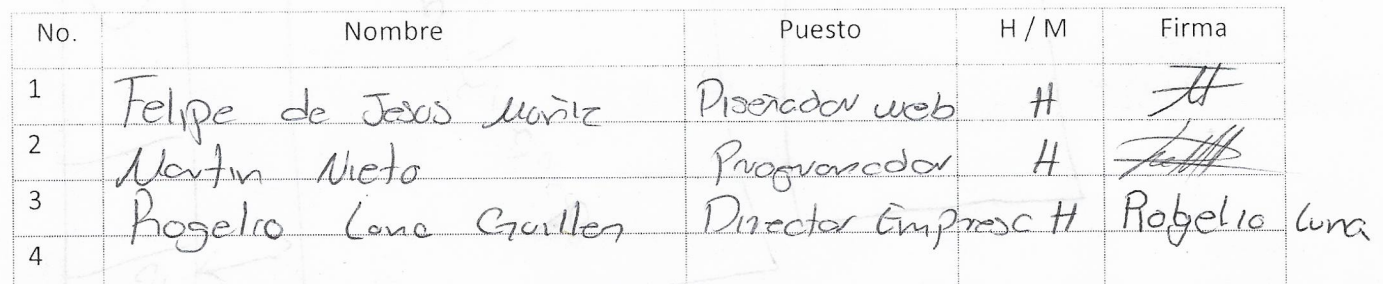 No. Nombre Puesto H / M Firma
1 Felipe de Jesus Muñiz Diseñador web H
2 Martin Nieto Programador H
3 Rogelio Luna Guillen Director Empresa H Rogelio Luna
4